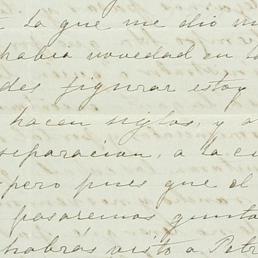 la que me dio m
habia novedad en l
des figurar estoy
hacen siglos, y a
separacion, a la cu
pero pues que el
pasaremos junto
habrás visto a Petr